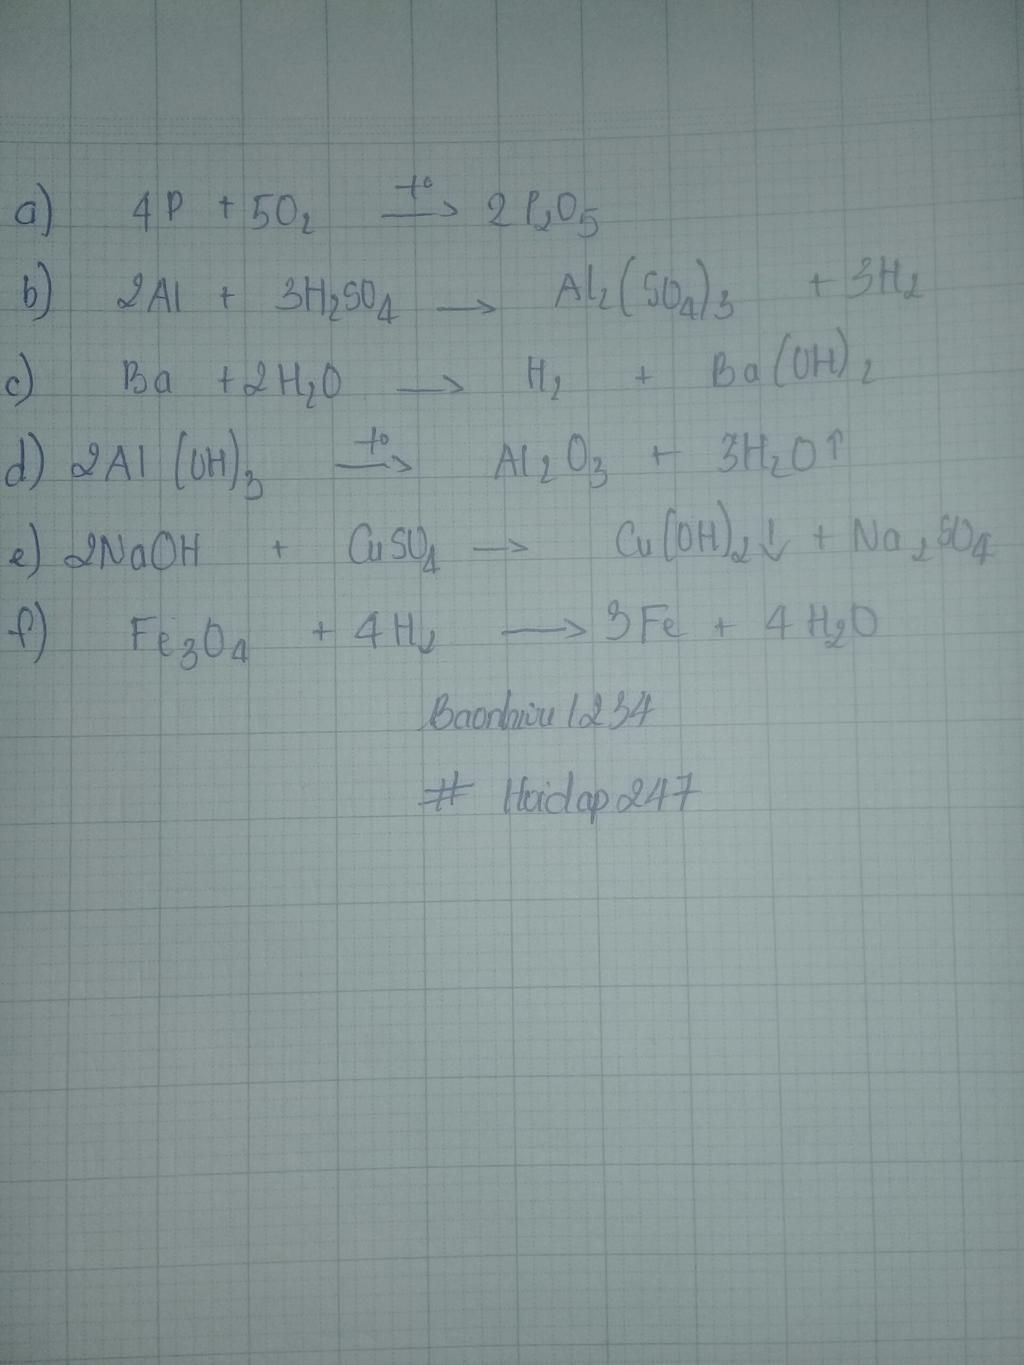 a) 4P + 5O₂ →(t°) 2P₂O₅
b) 2Al + 3H₂SO₄ → Al₂(SO₄)₃ + 3H₂
c) Ba + 2H₂O → H₂ + Ba(OH)₂
d) 2Al(OH)₃ →(t°) Al₂O₃ + 3H₂O↑
e) 2NaOH + CuSO₄ → Cu(OH)₂↓ + Na₂SO₄
f) Fe₃O₄ + 4H₂ → 3Fe + 4H₂O
Baonhiuu1234
# Hoidap247